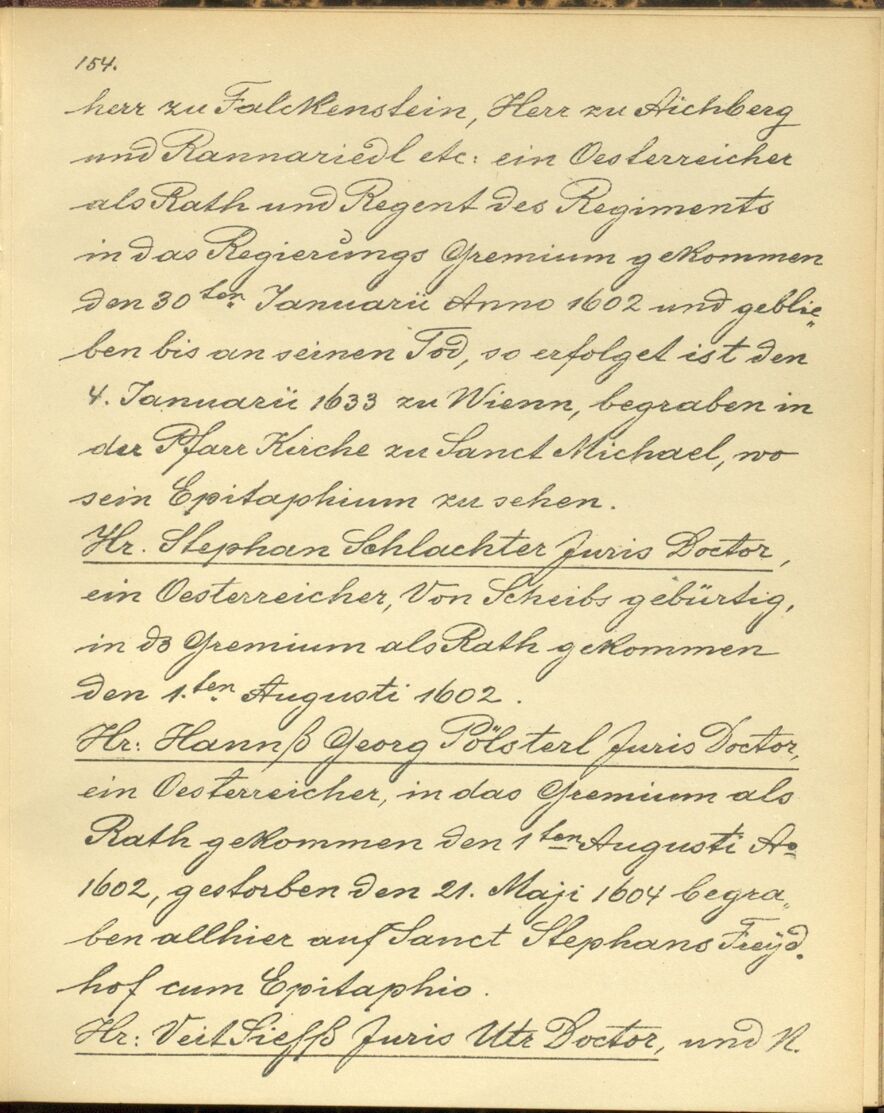 154.
herr zu Falckenstein, Herr zu Aichberg
und Rannariedl etc: ein Oesterreicher
als Rath und Regent des Regiments
in das Regierungs Gremium gekommen
den 30ten Ianuarii Anno 1602 und geblie„
ben bis an seinen Tod, so erfolget ist den
4. Ianuarii 1633 zu Wienn, begraben in
der Pfarr Kirche zu Sanct Michael, wo
sein Epitaphium zu sehen.
Hr. Stephan Schlachter Juris Doctor,
ein Oesterreicher, Von Scheibs gebürtig,
in dz Gremium als Rath gekommen
den 1.ten Augusti 1602.
Hr: Hannß Georg Pölsterl Juris Doctor,
ein Oesterreicher, in das Gremium als
Rath gekommen den 1ten Augusti Ao
1602, gestorben den 21. Maji 1604 begra„
ben allhier auf Sanct Stephans Freyd„
hof cum Epitaphio.
Hr: Veit Juris Utr Doctor, und N.